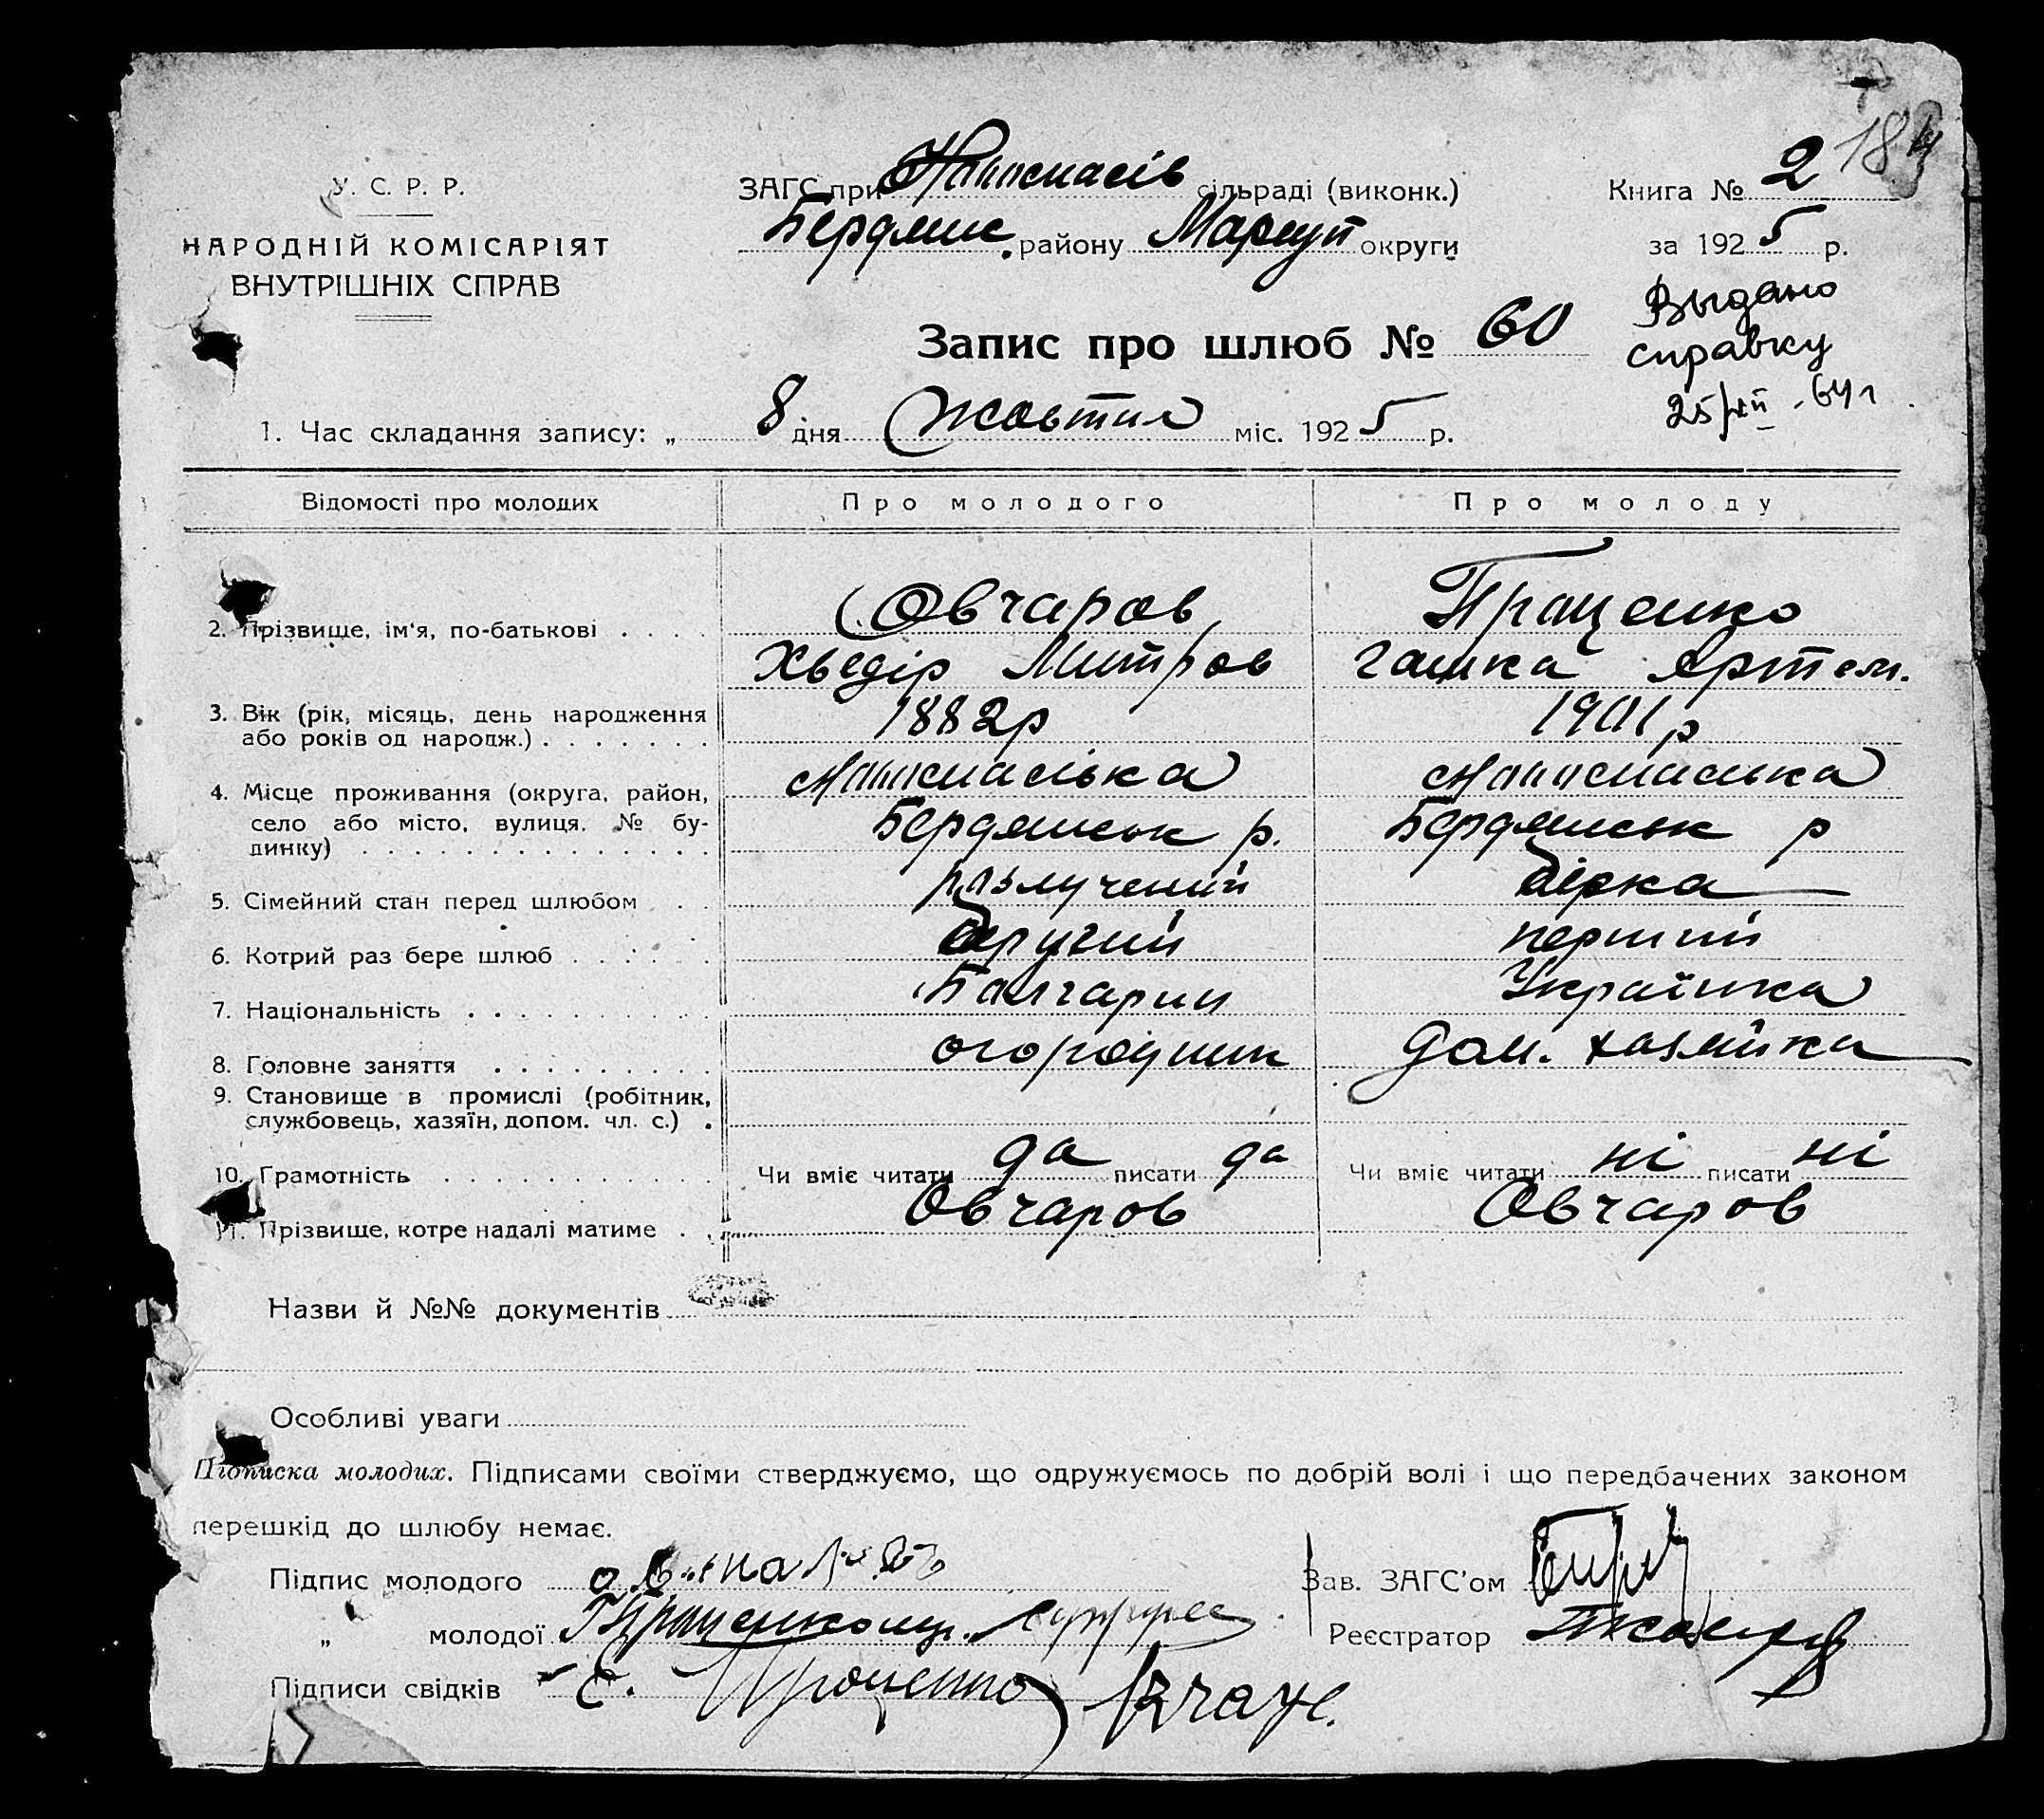 184
У. С. Р. Р.
НАРОДНІЙ КОМІСАРІЯТ
ВНУТРІШНІХ СПРАВ
ЗАГС при Новоспасів сільраді (виконк.)
Бердянк. району Марюп округи
Книга № 2
за 1925 р.
Выдано
справку
25/XII - 64 г
Запис про шлюб № 60
1. Час складання запису: „ 8 дня Жовтня міс. 1925 р.
Відомості про молодих
Про молодого
Про молоду
2. Прізвище, ім'я, по-батькові . . . .
Овчаров
Хведір Митров
Проценко
Гашка Артем.
3. Вік (рік, місяць, день народження
або років од народж.) . . . . . . .
1882 р
1901 р
4. Місце проживання (округа, район,
село або місто, вулиця, № бу-
динку) . . . . . . . . . . . . . .
Новоспаська
Бердянськ р.
Новоспаська
Бердянськ р
5. Сімейний стан перед шлюбом . .
розлучений
дівка
6. Котрий раз бере шлюб . . . . . .
другий
перший
7. Національність . . . . . . . . .
Балгарин
Українка
8. Головне заняття . . . . . . . . .
огородник
дом. хазяйка
9. Становище в промислі (робітник,
службовець, хазяїн, допом. чл. с.) .
10. Грамотність . . . . . . . . . . .
Чи вміє читати да писати да
Чи вміє читати ні писати ні
11. Прізвище, котре надалі матиме . .
Овчаров
Овчаров
Назви й №№ документів
Особливі уваги
Підписка молодих. Підписами своїми стверджуємо, що одружуємось по добрій волі і що передбачених законом
перешкід до шлюбу немає.
Підпис молодого
Зав. ЗАГС'ом
„ молодої
Реєстратор
Підписи свідків Є. Проценко